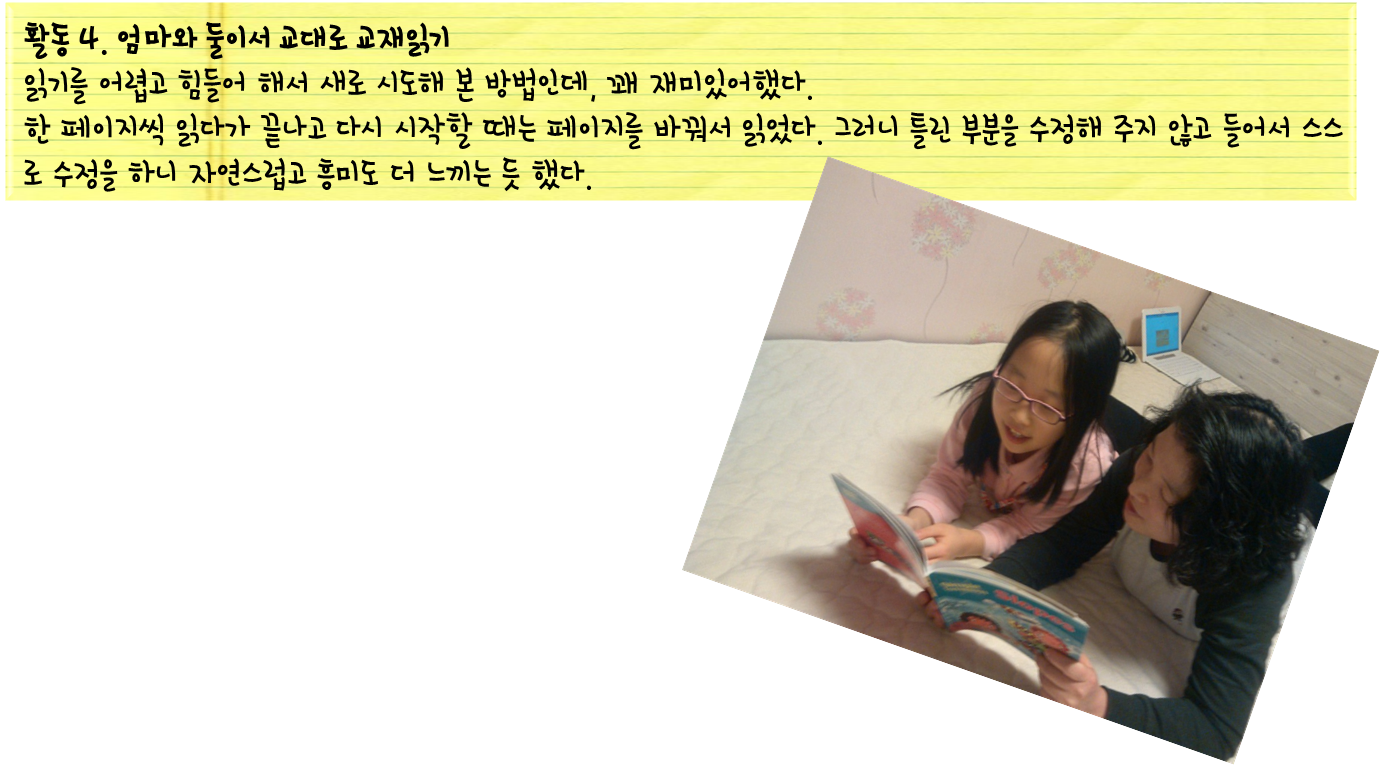 활동 4. 엄마와 둘이서 교대로 교재읽기
읽기를 어렵고 힘들어 해서 새로 시도해 본 방법인데, 꽤 재미있어했다.
한 페이지씩 읽다가 끝나고 다시 시작할 때는 페이지를 바꿔서 읽었다. 그러니 틀린 부분을 수정해 주지 않고 들어서 스스
로 수정을 하니 자연스럽고 흥미도 더 느끼는 듯 했다.